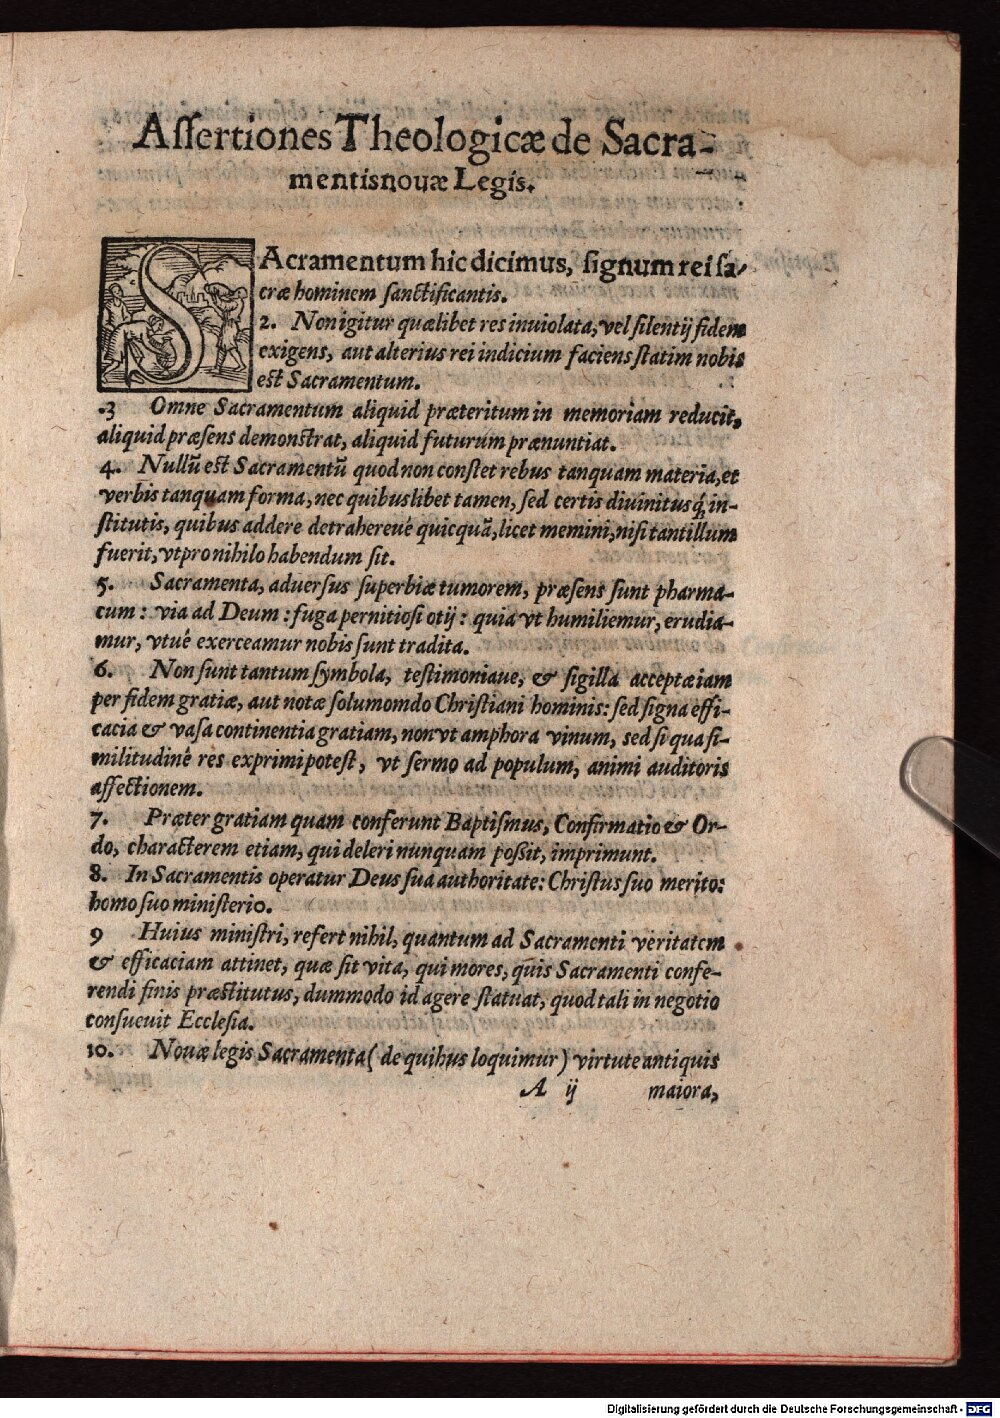 Aſſertiones Theologicæ de Sacra-
mentis nouæ Legis.
SAcramentum hic dicimus, ſignum rei ſa-
cræ hominem ſanctificantis.
2. Non igitur quælibet res inuiolata, vel ſilentij fidem
exigens, aut alterius rei indicium faciens ſtatim nobis
est Sacramentum.
.3 Omne Sacramentum aliquid præteritum in memoriam reducit,
aliquid præſens demonstrat, aliquid futurum prænuntiat.
4. Nullū est Sacramentū quod non conſtet rebus tanquam materia, et
verbis tanquam forma, nec quibuslibet tamen, ſed certis diuinitusq́; in-
ſtitutis, quibus addere detrahereué quicquā, licet memini, niſi tantillum
fuerit, vt pro nihilo habendum ſit.
5. Sacramenta, aduerſus ſuperbiæ tumorem, præſens ſunt pharma-
cum: via ad Deum: fuga pernitioſi otij: quia vt humiliemur, erudia-
mur, vtué exerceamur nobis ſunt tradita.
6. Non ſunt tantum ſymbola, teſtimoniaue, & ſigilla acceptæ iam
per fidem gratiæ, aut notæ ſolumomdo Chriſtiani hominis: ſed ſigna effi-
cacia & vaſa continentia gratiam, non vt amphora vinum, ſed ſi qua ſi-
militudiné res exprimi poteſt, vt ſermo ad populum, animi auditoris
affectionem.
7. Præter gratiam quam conferunt Baptiſmus, Confirmatio & Or-
do, characterem etiam, qui deleri nunquam poßit, imprimunt.
8. In Sacramentis operatur Deus ſua authoritate: Chriſtus ſuo merito:
homo ſuo miniſterio.
9 Huius miniſtri, refert nihil, quantum ad Sacramenti veritatem
& efficaciam attinet, quæ ſit vita, qui mores, quis Sacramenti confe-
rendi finis præstitutus, dummodo id agere ſtatuat, quod tali in negotio
conſueuit Eccleſia.
10. Nouæ legis Sacramenta (de quibus loquimur) virtute antiquis
A ij maiora,
Digitalisierung gefördert durch die Deutsche Forschungsgemeinschaft - DFG